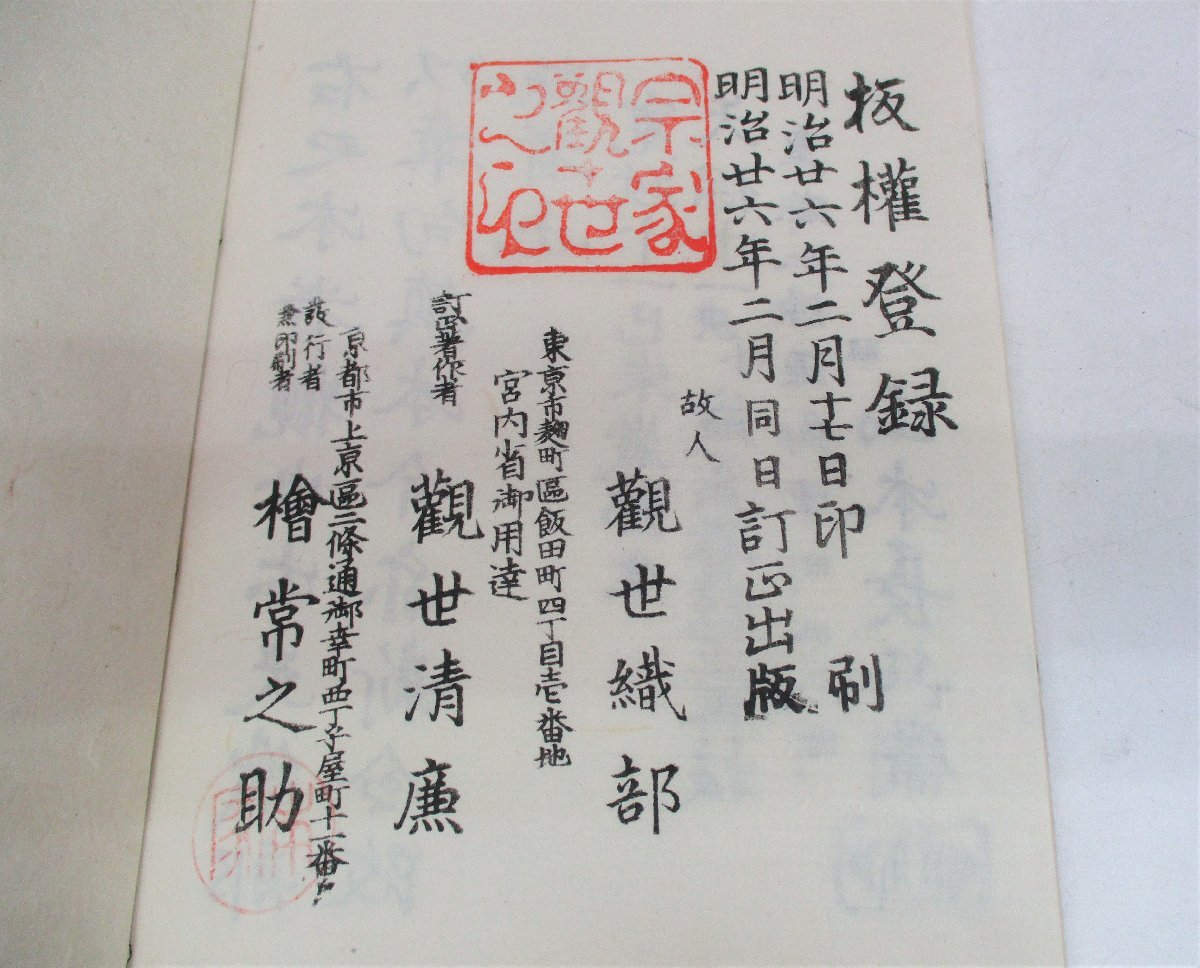 板權登録
明治廿六年二月十七日印刷
明治廿六年二月同日訂正出版
宗家
觀世
之印
故人 觀世織部
東京市麹町區飯田町四丁目壱番地
宮内省御用達
訂正著作者 觀世清廉
京都市上京區二條通御幸町西丁子屋町十一番戸
發行者
兼印刷者
檜常之助